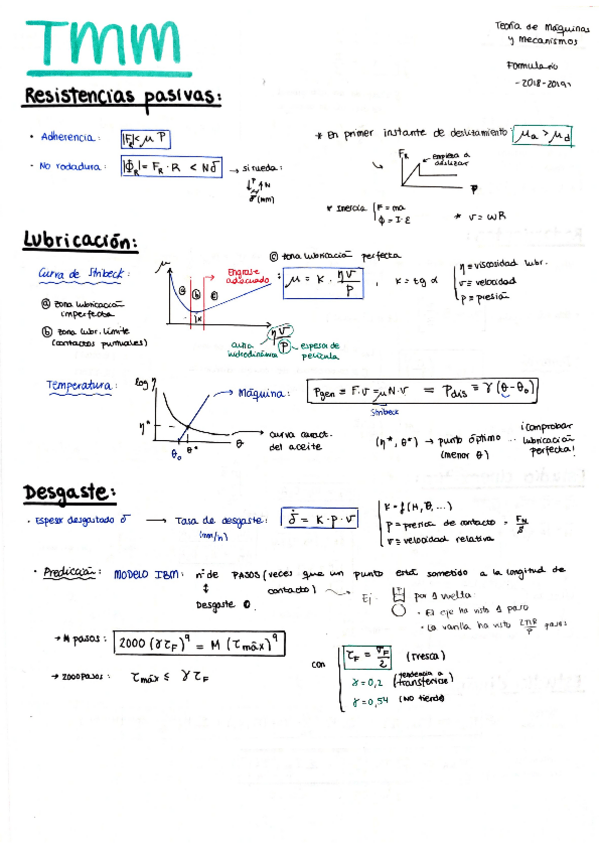 TMM
Teoría de Máquinas
y Mecanismos
Formulario
-2018-2019-
Resistencias pasivas:
· Adherencia: |F_R| < μ P
* En primer instante de deslizamiento: μa > μd
F_R
empieza a
deslizar
P
· No rodadura: |Φ_R| = F_R · R < N δ → si rueda:
↓P ↑N
δ (mm)
* Inercia F = ma
Φ = I·ε
* v = ωR
Lubricación:
Curva de Stribeck:
ⓐ zona lubricación
imperfecta
ⓑ zona lubr. límite
(contactos puntuales)
ⓒ zona lubricación perfecta
μ
ⓐ ⓑ ⓒ
Engrase
adecuado
: μ = K · ηv/P , K = tg α
η ≡ viscosidad lubr.
v ≡ velocidad
p ≡ presión
ηv/P
cuña
hidrodinámica
espesor de
película
Temperatura:
log η
η*
θ₀ θ* θ
→ Máquina: Pgen = F·v = μN·v = Pdis = γ(θ-θ₀)
Stribeck
→ curva caract.
del aceite
(η*, θ*) → punto óptimo
(menor θ)
¡comprobar
lubricación
perfecta!
Desgaste:
· Espesor desgastado δ → Tasa de desgaste: δ̇ = K·p·v
(mm/h)
K = f(H, θ, ...)
p ≡ presión de contacto = F_N/S
v ≡ velocidad relativa
· Predicción: MODELO IBM: nº de PASOS (veces que un punto está sometido a la longitud de
contacto)
↕
Desgaste 0.
Ej. por 1 vuelta
· El eje ha visto 1 paso
· La varilla ha visto 2πR/P pasos
→ M pasos: 2000 (γτ_F)⁹ = M (τmáx)⁹
→ 2000 pasos: τmáx ≤ γτ_F
con
τ_F = σ_F/2 (Tresca)
γ = 0,2 (tendencia a
transferirse)
γ = 0,54 (NO tiende)